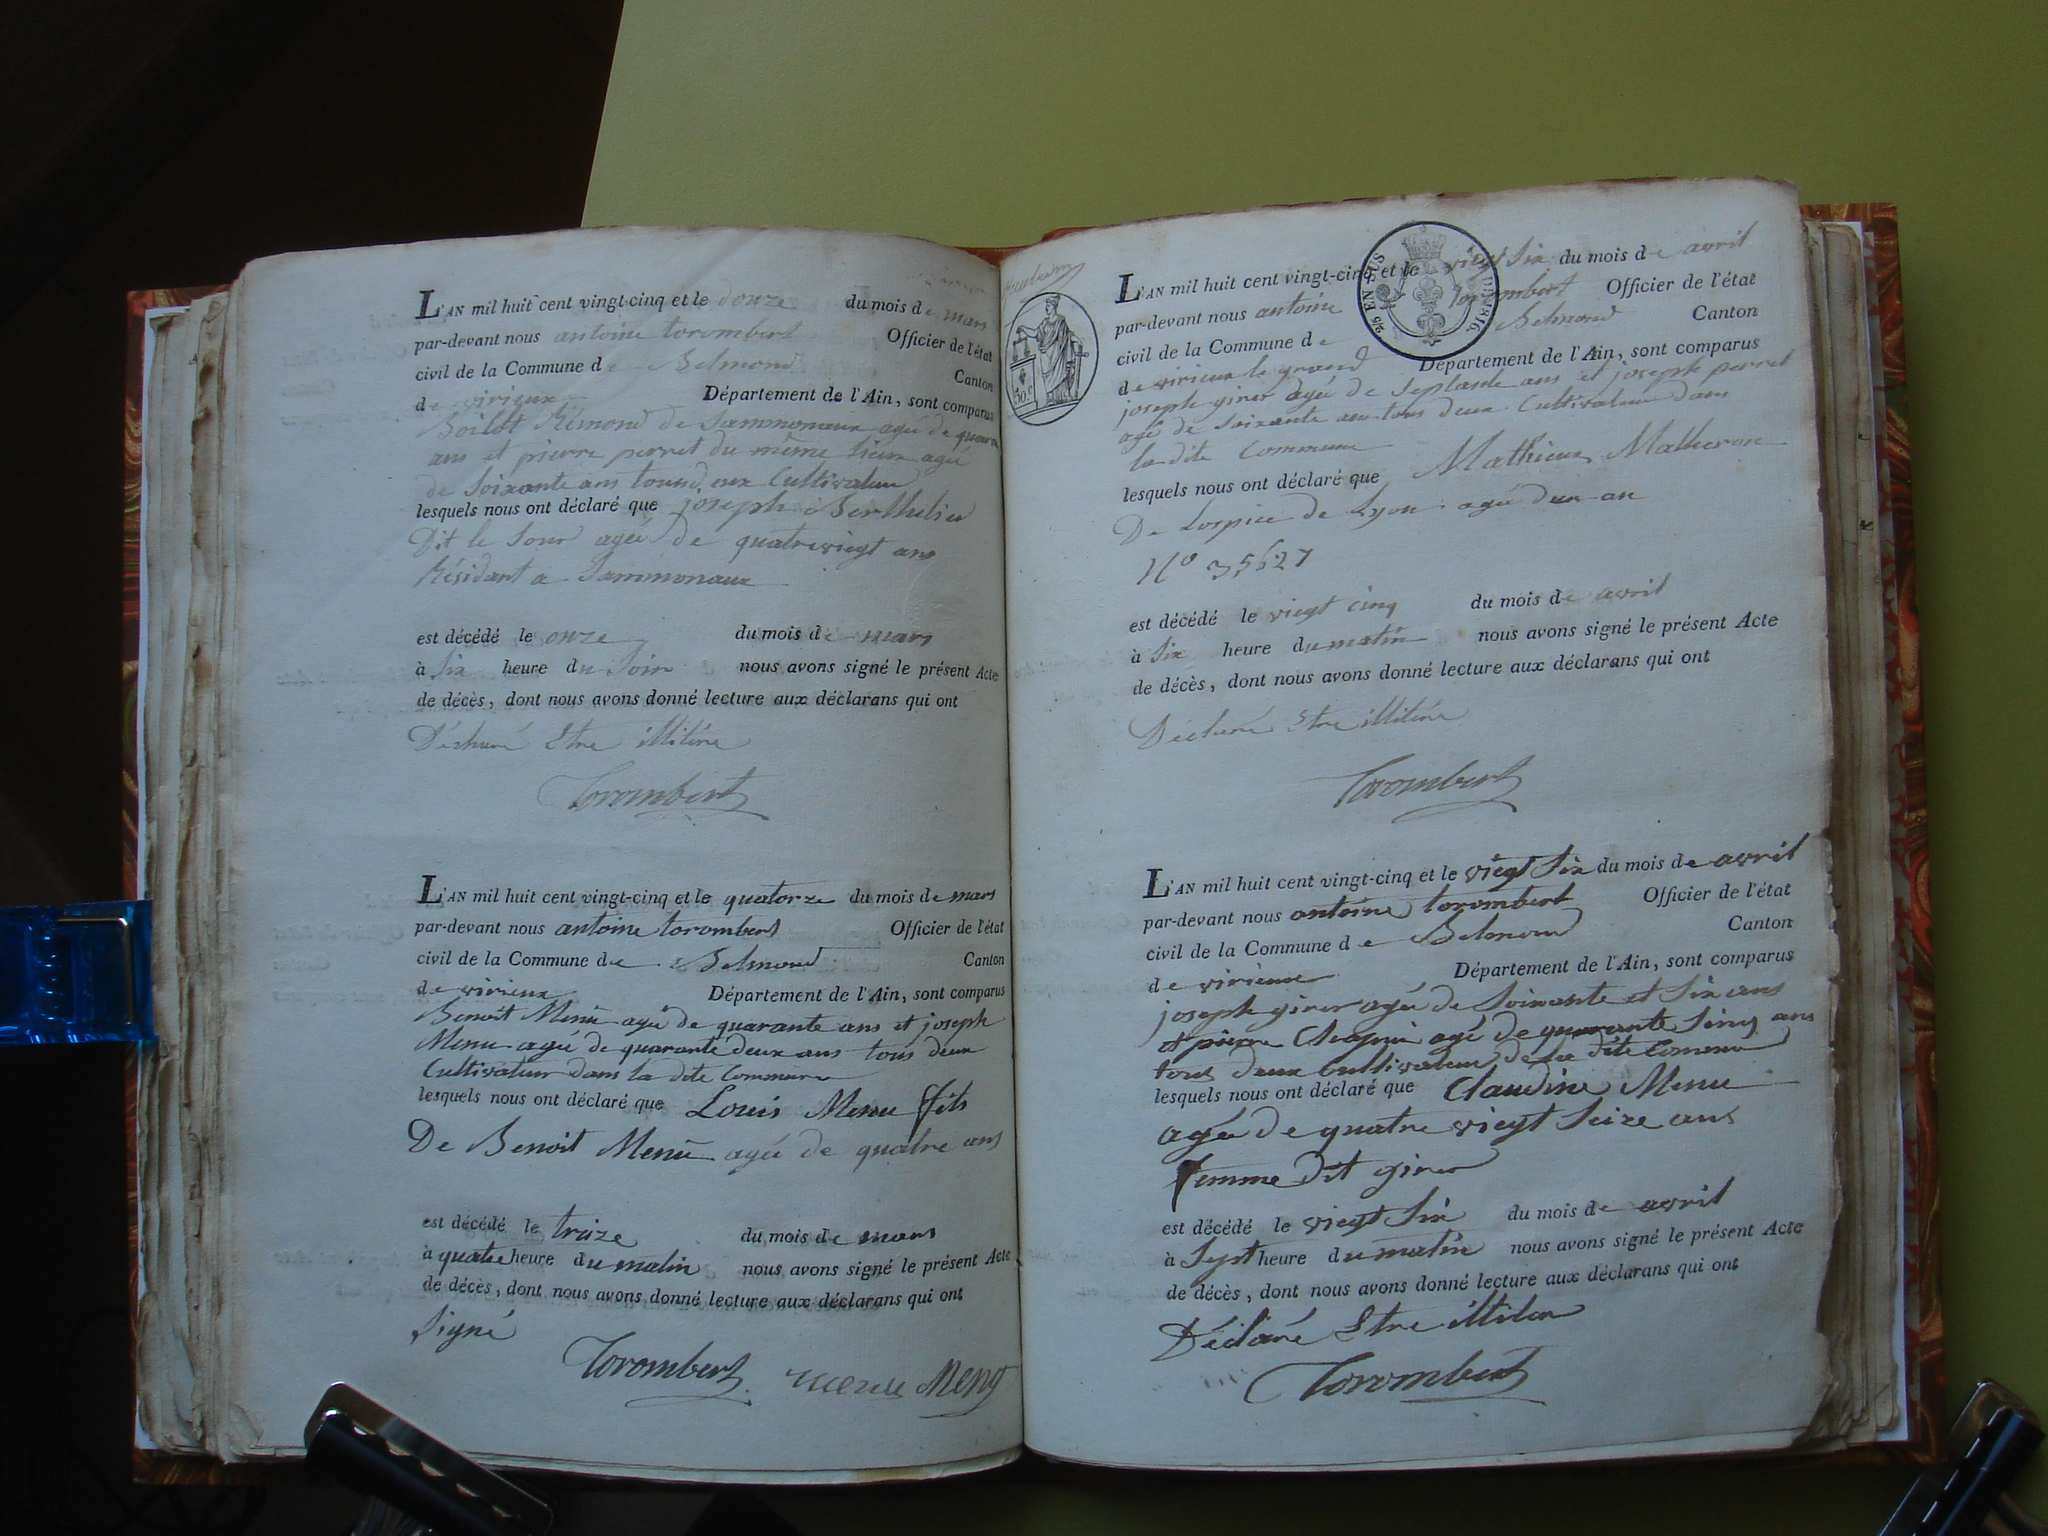 L'AN mil huit cent vingt-cinq et le douze du mois de mars
par-devant nous antoine torombert Officier de l'état
civil de la Commune de Belmond Canton
de virieux Département de l'Ain, sont comparus
Boilot Rémond de Sammonaux agé de quarante
ans et pierre perret du même lieux agé
de Soixante ans tousd eux Cultivateur
lesquels nous ont déclaré que joseph Berthelier
Dit le Sour agé de quatreviegt ans
Résidant a Sammonaux
est décédé le onze du mois de mars
à Six heure du Soir nous avons signé le présent Acte
de décès, dont nous avons donné lecture aux déclarans qui ont
Déclaré Etre illitéré
Torombert
L'AN mil huit cent vingt-cinq et le quatorze du mois de mars
par-devant nous antoine torombert Officier de l'état
civil de la Commune de Belmond Canton
de virieux Département de l'Ain, sont comparus
Benoit Menu agé de quarante ans et joseph
Menu agé de quarante deux ans tous deux
Cultivateur dans la dite Commune
lesquels nous ont déclaré que Louis Menu fils
De Benoit Menu agé de quatre ans
est décédé le traize du mois de mars
à quatre heure du matin nous avons signé le présent Acte
de décès, dont nous avons donné lecture aux déclarans qui ont
Signé
Torombert menu
L'AN mil huit cent vingt-cinq et le viegt Six du mois de avril
par-devant nous antoine torombert Officier de l'état
civil de la Commune de Belmond Canton
de virieux le grand Département de l'Ain, sont comparus
joseph girer agé de Septante ans et joseph perret
agé de Soixante ans tous deux Cultivateur dans
la dite Commune
lesquels nous ont déclaré que Mathieux Matheron
De Lospice de Lyon agé dun an
No 35627
est décédé le viegt cinq du mois de avril
à Six heure du matin nous avons signé le présent Acte
de décès, dont nous avons donné lecture aux déclarans qui ont
Déclaré Etre illitéré
Torombert
L'AN mil huit cent vingt-cinq et le viegt Six du mois de avril
par-devant nous antoine torombert Officier de l'état
civil de la Commune de Belmond Canton
de virieux Département de l'Ain, sont comparus
joseph girer agé de Soixante et Six ans
et pierre agé de quarante Sinq ans
tous deux Cultivateur de la dite Commune
lesquels nous ont déclaré que Claudine Menu
agée de quatre viegt Seize ans
femme dit girer
est décédé le viegt Six du mois de avril
à Sept heure du matin nous avons signé le présent Acte
de décès, dont nous avons donné lecture aux déclarans qui ont
Déclaré Etre illiteré
Torombert